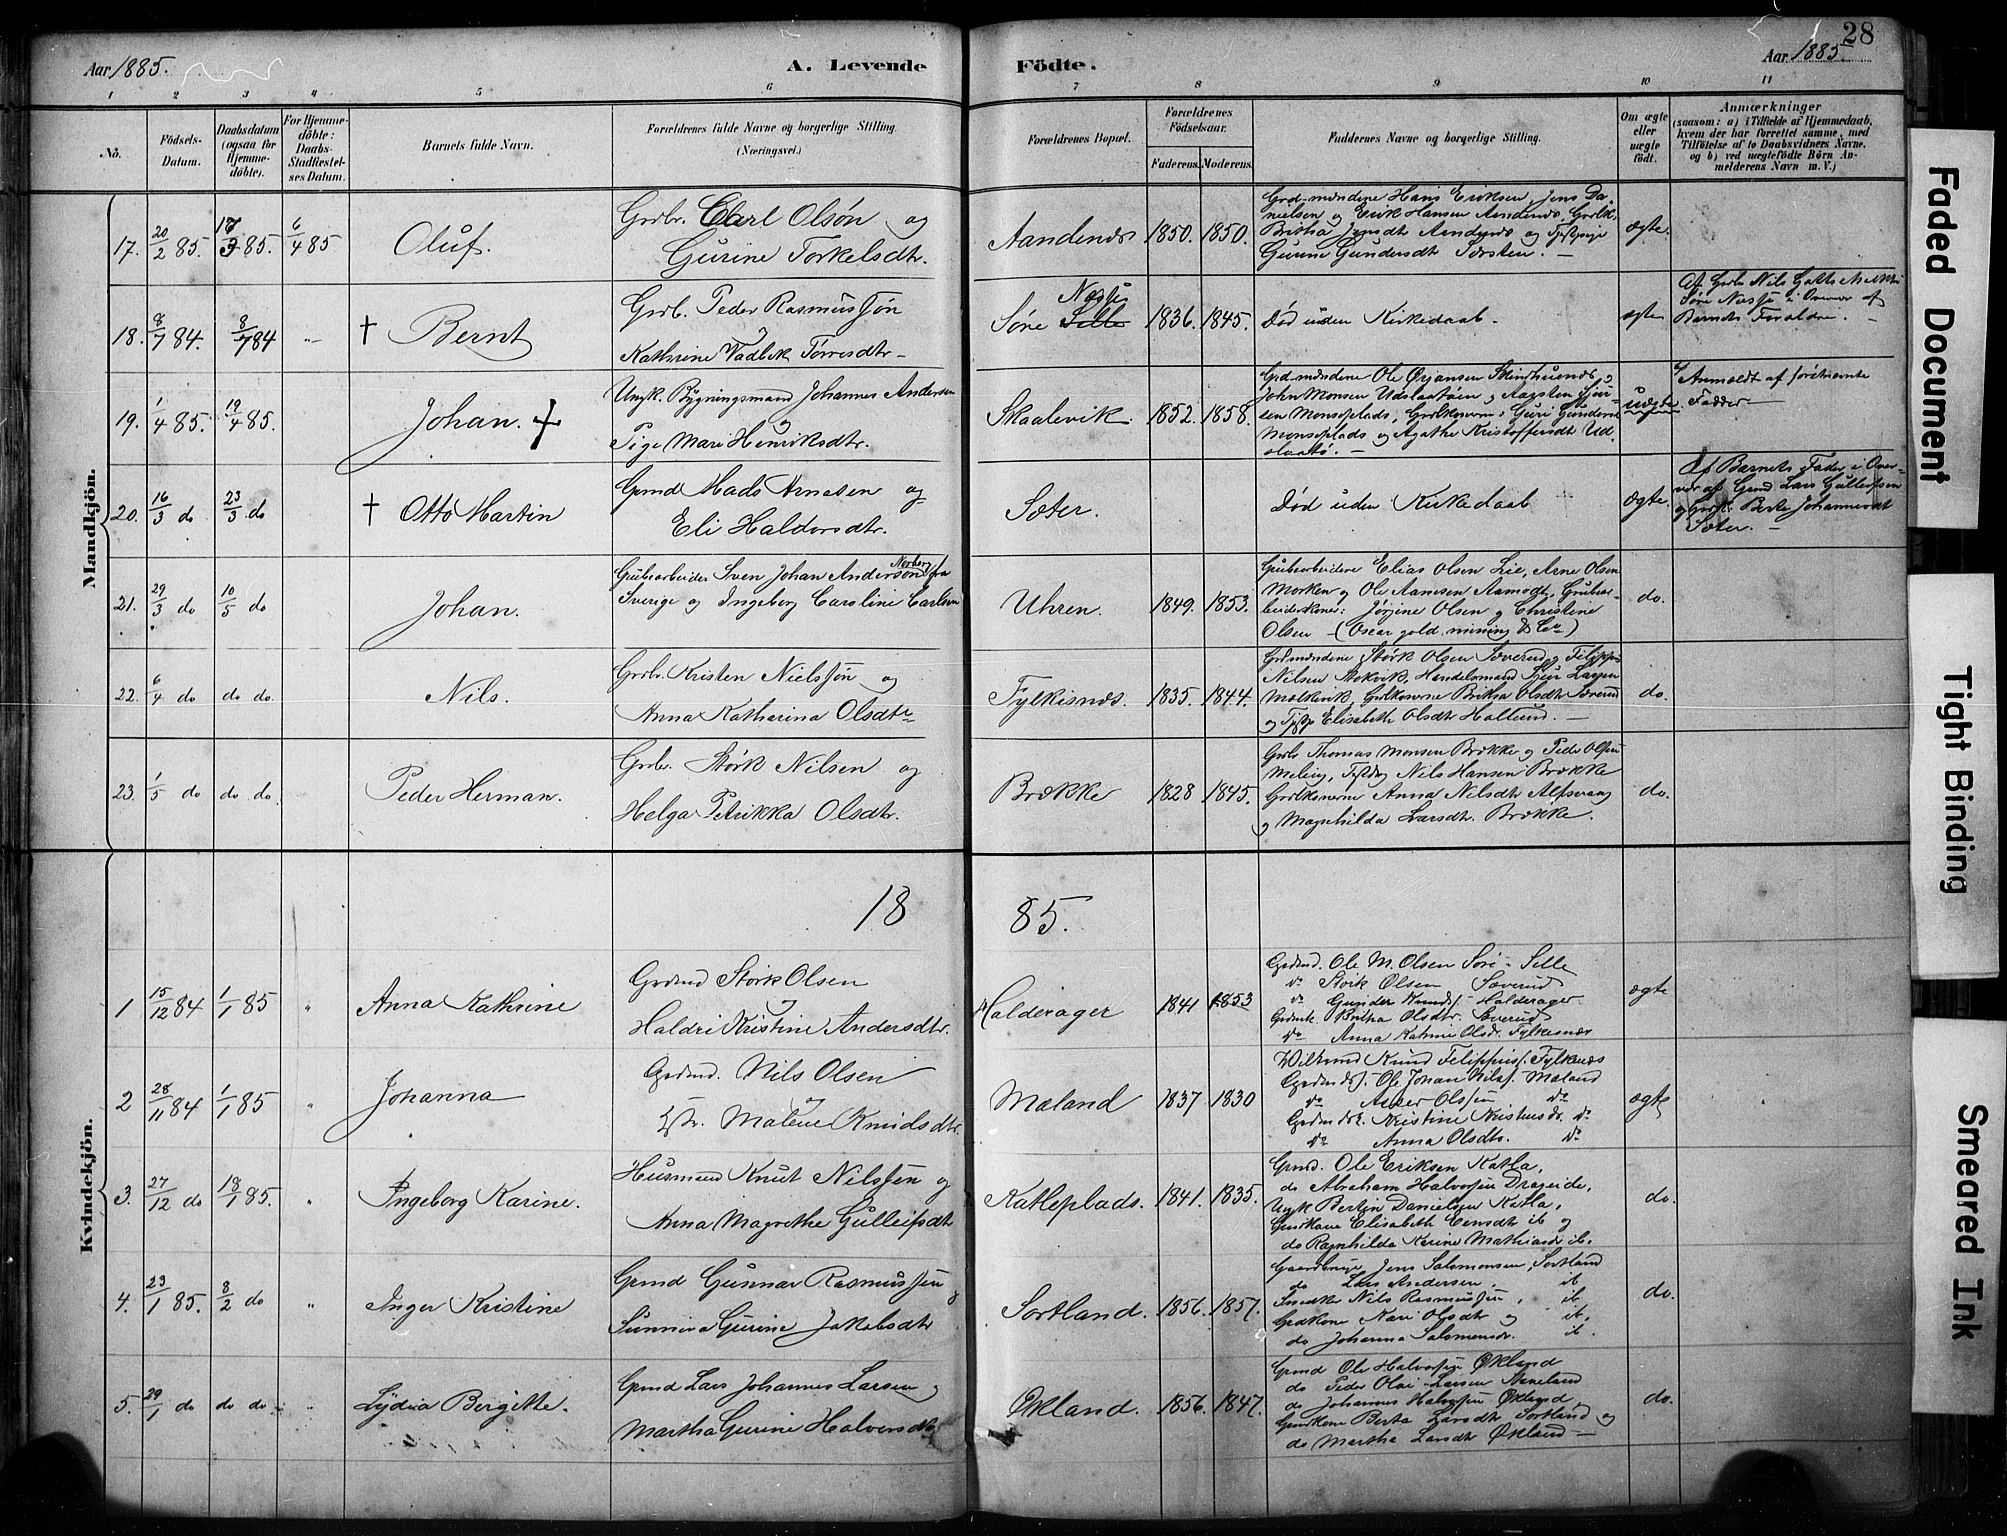 28
Aar 1885.
A. Levende Födte.
Aar 1885.
1 2 3 4 5 6 7 8 9 10 11
No.
Födsels-Datum.
Daabsdatum (ogsaa for Hjemme-döbte).
For Hjemme-döbte: Daabs-Stadfæstel-ses Datum.
Barnets fulde Navn.
Forældrenes fulde Navne og borgerlige Stilling. (Næringsvei.)
Forældrenes Bopæl.
Forældrenes Födselsaar.
Faderens. Moderens.
Faddernes Navne og borgerlige Stilling.
Om ægte eller uægte födt.
Anmærkninger
(saasom: a) i Tilfælde af Hjemmedaab, hvem der har forrettet samme, med Tilföielse af to Daabsvidners Navne, og b) ved uægtefödte Börn An-melderens Navn m. V.)
Mandkjön.
17. 20/2 85. 17/3 85. 6/4 85
Oluf.
Grdbr. Carl Olsøn og
Gurine Torkelsdtr.
Aandenæs 1850. 1850.
Grd-mændene Hans Eriksen, Jens Da-
nielsen og Erik Hansen Aandenæs, Grdk.
Gurine Gundersdt
ægte.
18. 8/7 84. 8/7 84 "
† Bernt
Grdb. Peder Rasmussøn
og
Kathrine Vadbek Torresdtr
Næsse
Søre Selle 1836. 1845.
Død uden Kirkedaab.
ægte
Af Grdb Nils
Søre Næsse i Overvær af
Barnets Forældre.
19. 1/4 85. 19/4 85.
Johan. +
Ungk. Bygningsmand Johannes Andersen
og
Pige Mari Henriksdtr.
Skaalevik. 1852. 1858.
Grd-mændene Ole Ørjansen
John Monsen
Monseplads og Agathe Kristoffersdt Ud-
uægte.
Anmeldt af førstnævnte
Fadder
20. 16/3 do 23/3 do
† Otto Martin
Grmd Mads Arnesen og
Eli Haldorsdtr.
Sæter.
Død uden Kirkedaab
ægte.
Af Barnets Fader i Over-
vær af Grmd Lars Gulleifsen
og Grdk. Berte Johannesdt
Sæter.
21. 29/3 do 10/5 do
Johan.
Norberg
Grubearbeider Sven Johan Anderson fra
Sverige og Ingeborg Caroline Carlsen
Uhren. 1849. 1853.
Grubearbeidere Elias Olsen Lie, Arne Olsen
Morken og Ole Aamodt, Grubear-
beiderkoner: Jørgine Olsen og Christine
Olsen - (Oscar gold mining & Co)
do.
22. 6/4 do do do
Nils.
Grdb. Kristen Nielssøn og
Anna Katharina Olsdtr
Fylkisnæs. 1835. 1844.
Grdmændene Størk Olsen Sæverud og Filippus
Nilsen Stokvik, Handelsmand
Molkevik, Grdkonerne Olsdtr Sæverud
og Elisabeth Olsdt
do.
23. 1/5 do do do
Peder Herman.
Grdb. Størk Nilsen og
Helga Petrikka Olsdtr.
Brække 1828 1845.
Grdb Thomas Monsen Brække og Peder Olsen
Nils Hansen Brække
Grdkonerne Anna Nilsdt Alfsvaag
og Magnhilda Larsdt. Brække.
do.
1885.
Kvindekjön.
1 15/12 84 1/1 85 "
Anna Kathrine
Grdmd Størk Olsen
og
Haldri Kristine Andersdtr.
Halderager 1841 1853
Grdmd. Ole M. Olsen Søre-Selle
do Størk Olsen Sæverud
do Gunder Knuds. Halderager
Britha Olsdtr. Sæverud
do Anna Katrine Olsdr. Fylkesnæs
ægte
2 28/11 84 1/1 85 "
Johanna
Grdmd. Nils Olsen
og
Malene Knudsdtr.
Mæland 1837 1830
Knud Filippus. Fylkenæs
Ole Johan Nils. Mæland
do Olssøn do
Kristine Kristensdr. do
do Anna Olsdtr. do
ægte
3. 27/12 do 18/1 85. "
Ingeborg Karine.
Husmand Knut Nilssøn og
Anna Magrethe Gulleifsdt
Katleplads. 1841. 1835.
Grmd. Ole Eriksen Katla,
do Abraham Halvorsøn Drageide,
Ungk Bertin Danielsen Katla,
Elisabeth ib og
do Ragnhilda Karine Mathiasdt ib.
do.
4. 23/1 85. 8/2 do "
Inger Kristine
Grmd Gunnar Rasmussøn og
Sunniva Gurine Jakobsdtr
Sortland. 1856. 1857.
Jens Salomonsen, Sortland
do Lars Andersen, ib
Snedker Nils Rasmussøn, ib
Grdkone Kari Olsdt og ib.
do Johanna Salomonsdr. ib.
do.
5. 29/1 do do do "
Lydia Bergitte.
Grmd Lars Johannes Larsen og
Martha Gurine Halvorsdtr
Økland. 1856. 1847.
Grmd Ole Halvorsøn Økland
do Peder Olai Larsen
do Johannes Halvorsøn Økland
Berta Larsdt Sortland og
do Martha Larsdt Økland
do.
Faded Document
Tight Binding
Smeared Ink